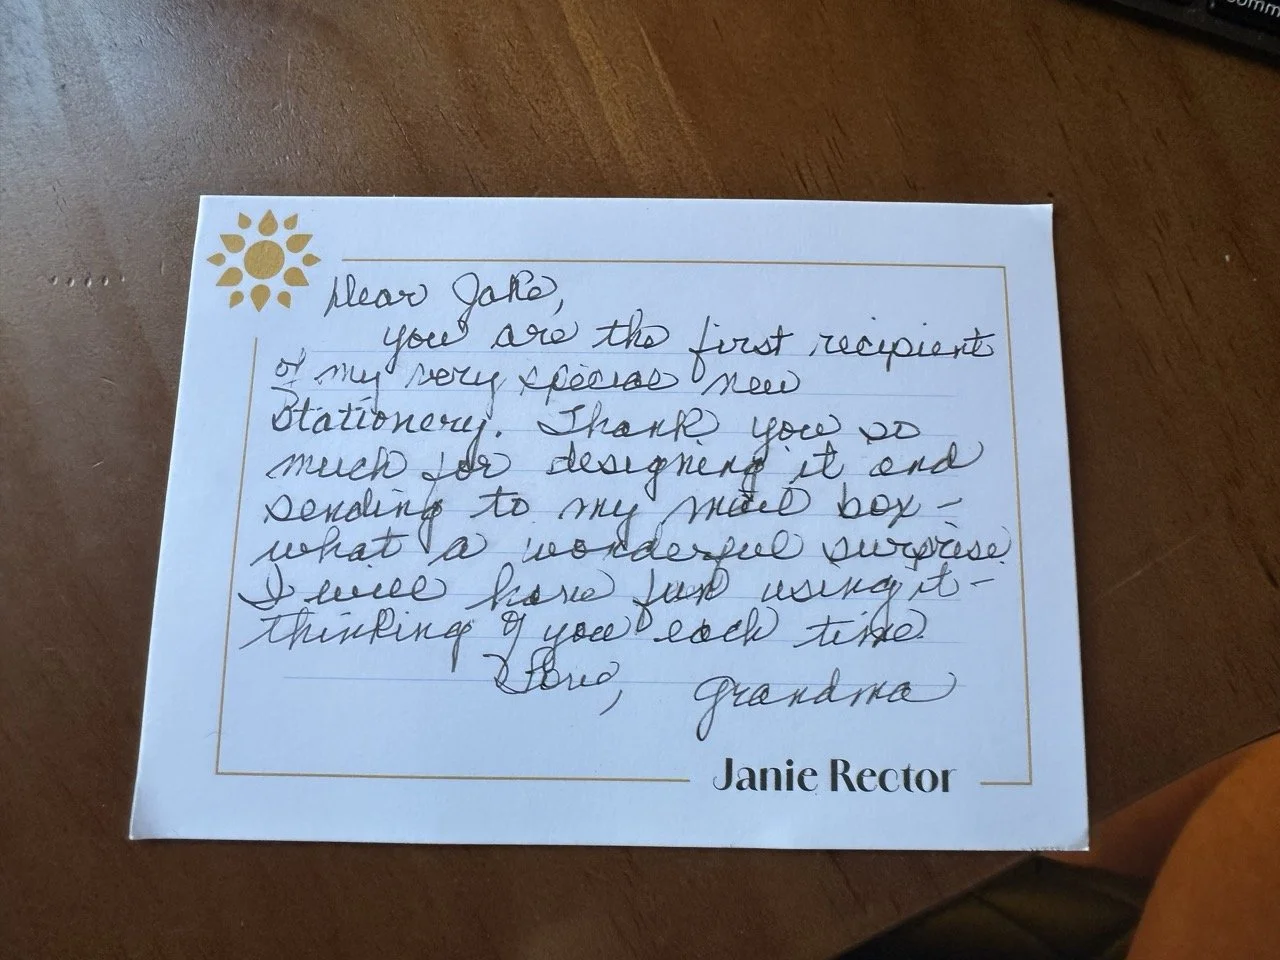 comm
Dear Jake,
you are the first recipient
of my very special new
stationery. Thank you so
much for designing it and
sending to my mail box -
what a wonderful surprise.
I will have fun using it -
thinking of you each time.
Love, Grandma
Janie Rector